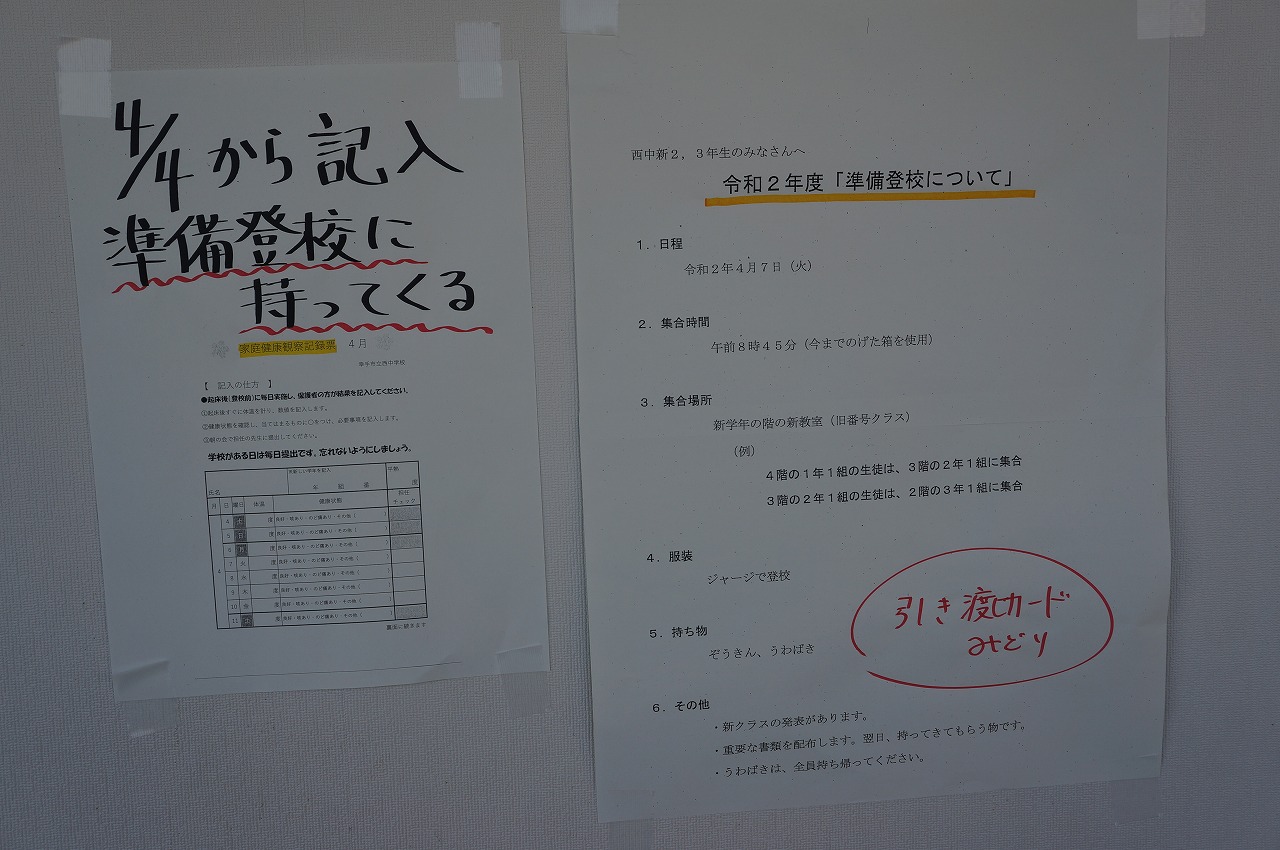 4/4から記入
準備登校に
持ってくる
家庭健康観察記録票 4月
幸手市立西中学校
【 記入の仕方 】
●起床後(登校前)に毎日実施し、保護者の方が結果を記入してください。
①起床後すぐに体温を計り、数値を記入します。
②健康状態を確認し、当てはまるものに○をつけ、必要事項を記入します。
③朝の会で担任の先生に提出してください。
学校がある日は毎日提出です。忘れないようにしましょう。
氏名
年 組 番
平熱 度
月 日 曜日 体温 健康状態 担任チェック
4 4 土 度 良好・咳あり・のど痛あり・その他( )
5 日 度 良好・咳あり・のど痛あり・その他( )
6 月 度 良好・咳あり・のど痛あり・その他( )
7 火 度 良好・咳あり・のど痛あり・その他( )
8 水 度 良好・咳あり・のど痛あり・その他( )
9 木 度 良好・咳あり・のど痛あり・その他( )
10 金 度 良好・咳あり・のど痛あり・その他( )
11 土 度 良好・咳あり・のど痛あり・その他( )
裏面に続きます
西中新2,3年生のみなさんへ
令和2年度「準備登校について」
1.日程
令和2年4月7日(火)
2.集合時間
午前8時45分(今までのげた箱を使用)
3.集合場所
新学年の階の新教室(旧番号クラス)
(例)
4階の1年1組の生徒は、3階の2年1組に集合
3階の2年1組の生徒は、2階の3年1組に集合
4.服装
ジャージで登校
5.持ち物
ぞうきん、うわばき
引き渡しカード
みどり
6.その他
・新クラスの発表があります。
・重要な書類を配布します。翌日、持ってきてもらう物です。
・うわばきは、全員持ち帰ってください。